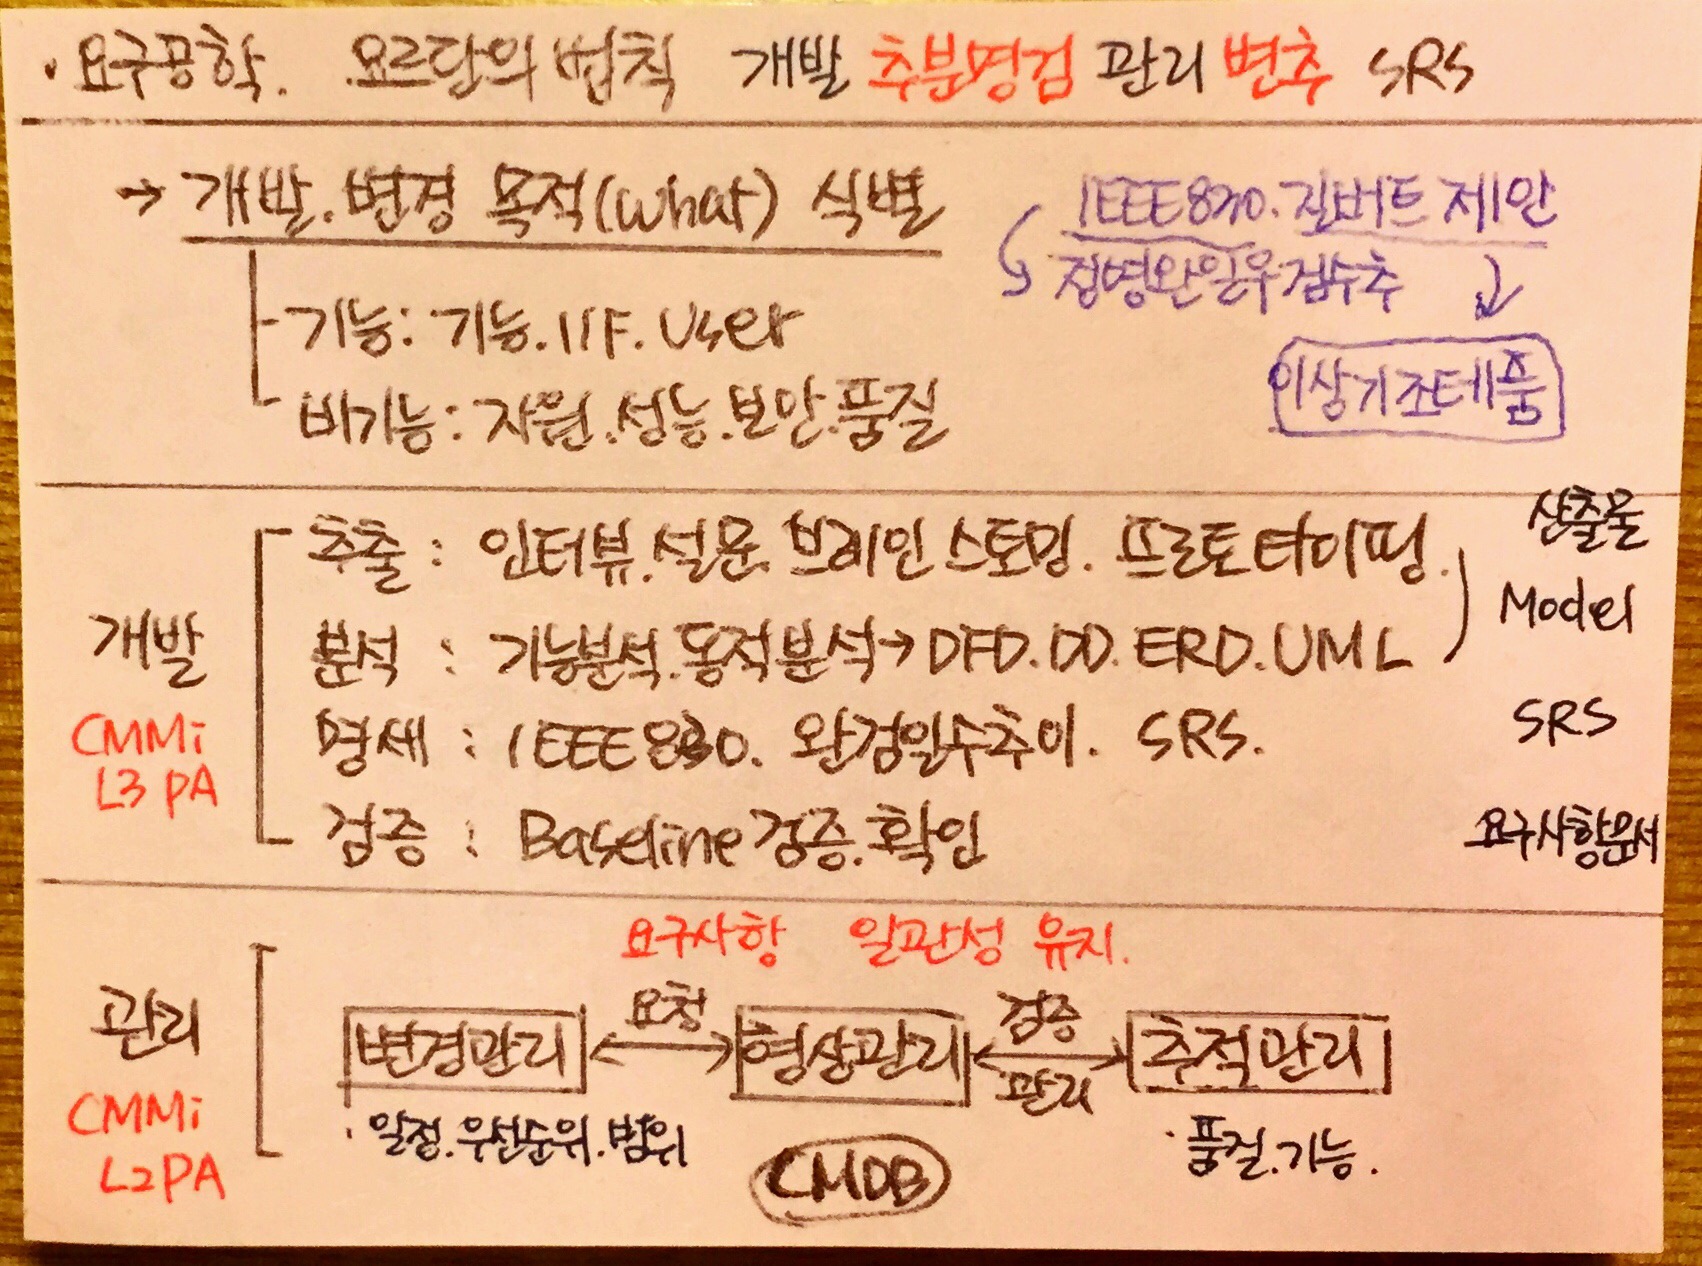 · 요구공학. 요르단의 법칙 개발 추분명검 관리 변추 SRS
→ 개발.변경 목적(what) 식별
IEEE830.길버트 제안
정명완일우검수추
이상기조테품
기능: 기능.I/F.User
비기능: 자원.성능.보안.품질
산출물
추출 : 인터뷰.설문.브레인스토밍.프로토타이핑.
Model
개발
분석 : 기능분석.동적분석→DFD.DD.ERD.UML
CMMi
L3 PA
명세 : IEEE830. 완검일수추이. SRS.
SRS
검증 : Baseline 검증.확인
요구사항문서
요구사항 일관성 유지.
관리
변경관리 요청 형상관리 검증 관리 추적관리
CMMi
L2PA
· 일정.우선순위.범위
· 품질.기능.
CMDB